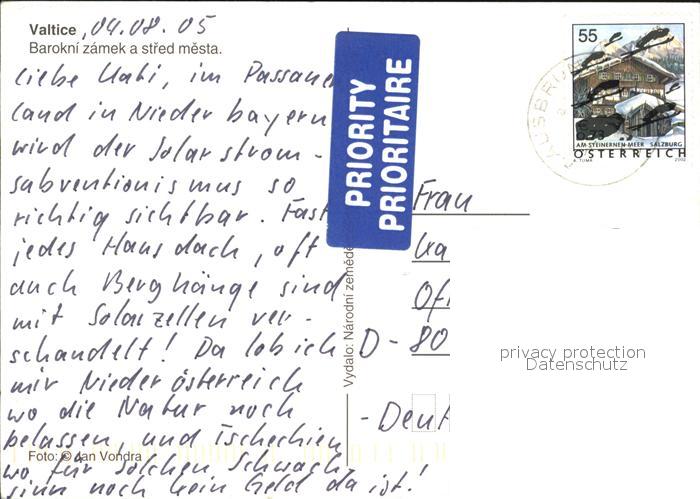 Valtice , 04.08.05
Barokní zámek a střed města.
Liebe Kati, im Passauer
Land in Niederbayern
wird der Solarstrom-
subventionismus so
richtig sichtbar. Fast
jedes Hausdach, oft
auch Berghänge sind
mit Solarzellen ver-
schandelt! Da lob ich
mir Niederösterreich
wo die Natur noch
belassen und Tschechien
wo für solchen Schwach-
sinn noch kein Geld da ist!
Foto: © Jan Vondra
Vydalo: Národní zemědě
PRIORITY
PRIORITAIRE
55
AM STEINERNEN MEER SALZBURG
ÖSTERREICH
A. TUMA 2002
Frau
Ka
Ofi
D - 80
- Deut
privacy protection
Datenschutz